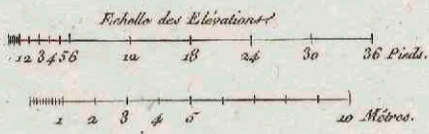 Echelle des Elévations
12 3 4 5 6 12 18 24 30 36 Pieds.
1 2 3 4 5 10 Métres.